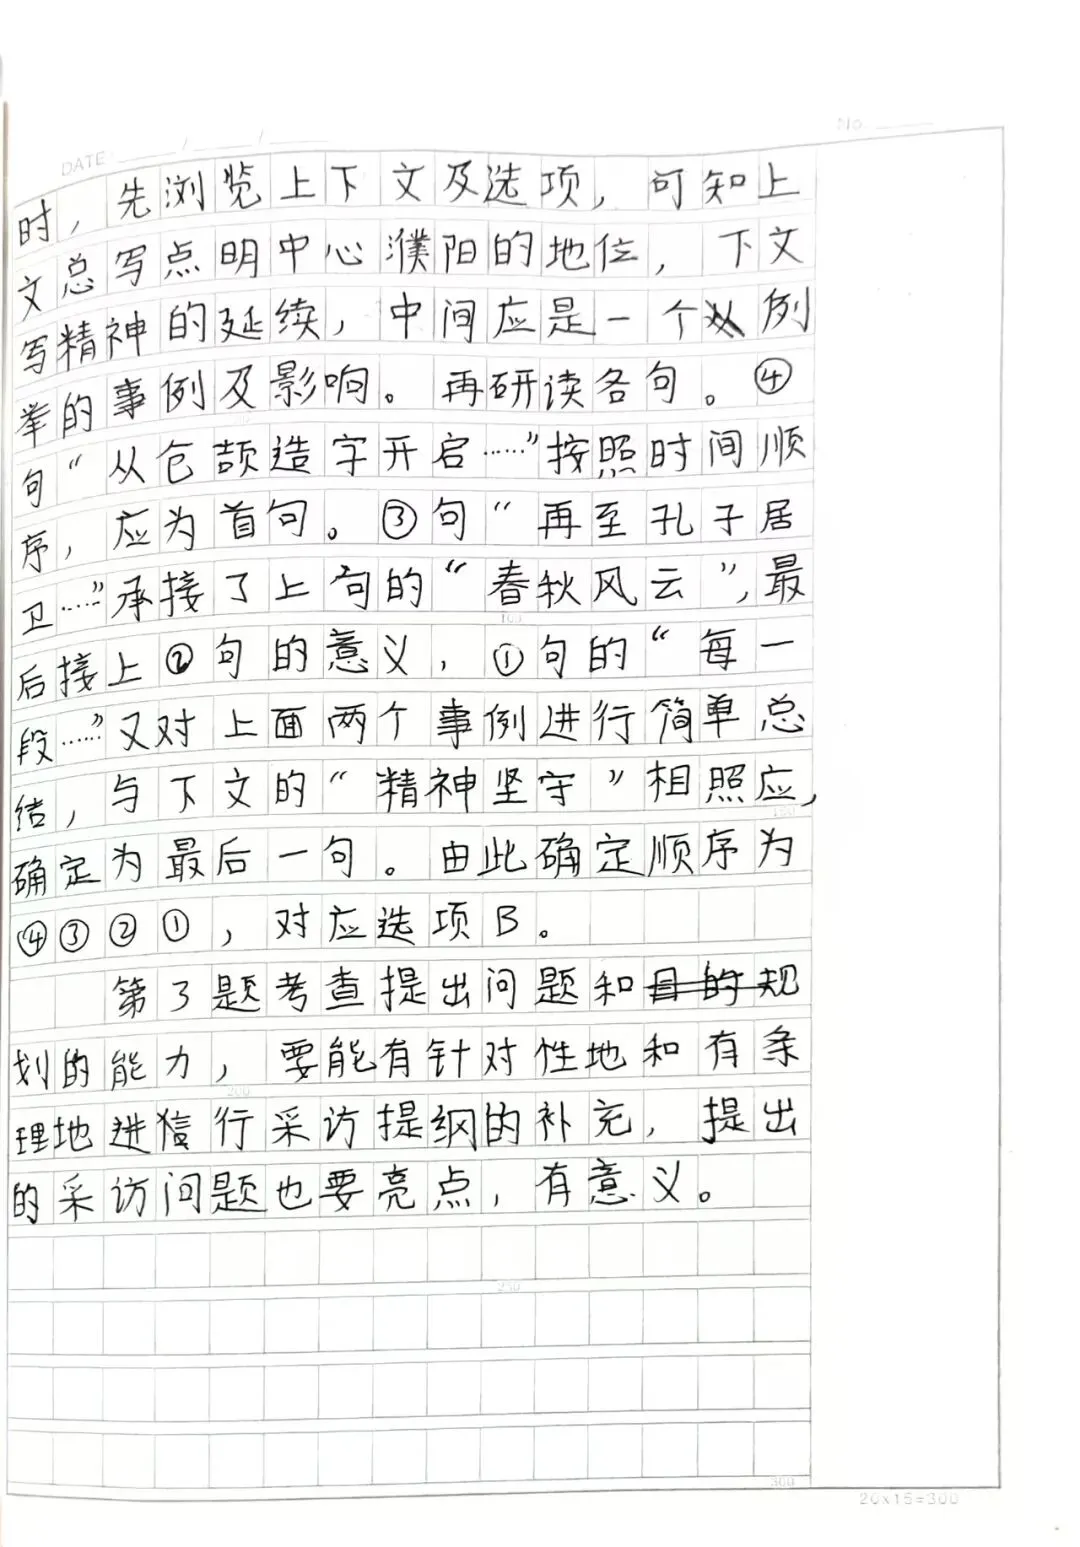 No.
DATE / /
时，先浏览上下文及选项，可知上
文总写点明中心濮阳的地位，下文
写精神的延续，中间应是一个例
举的事例及影响。再研读各句。④
句“从仓颉造字开启……”按照时间顺
序，应为首句。③句“再至孔子居
卫……”承接了上句的“春秋风云”，最
后接上②句的意义，①句的“每一
段……”又对上面两个事例进行简单总
结，与下文的“精神坚守”相照应，
确定为最后一句。由此确定顺序为
④③②①，对应选项B。
第3题考查提出问题和目的规
划的能力，要能有针对性地和有条
理地进行采访提纲的补充，提出
的采访问题也要亮点，有意义。
100
200
250
300
20×15=300